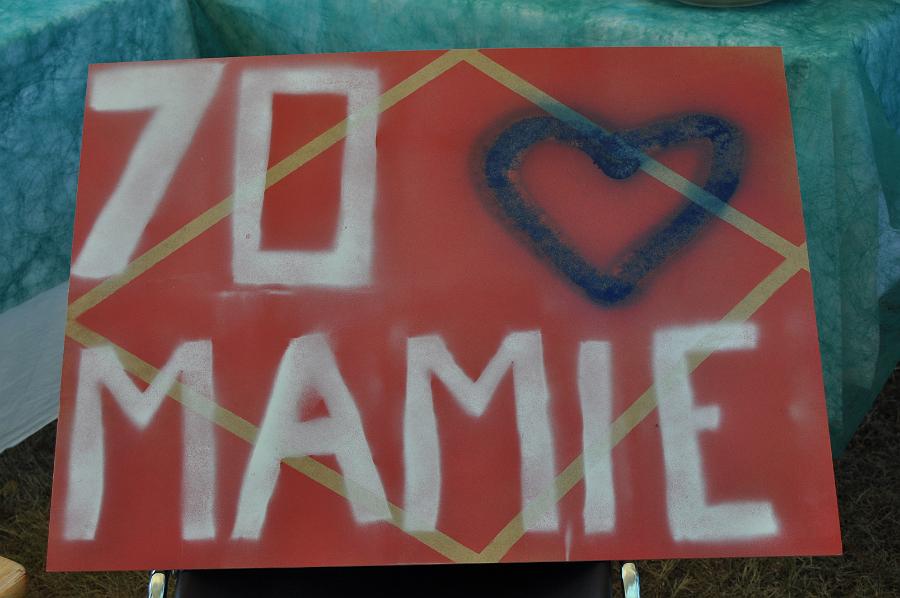 70
MAMIE